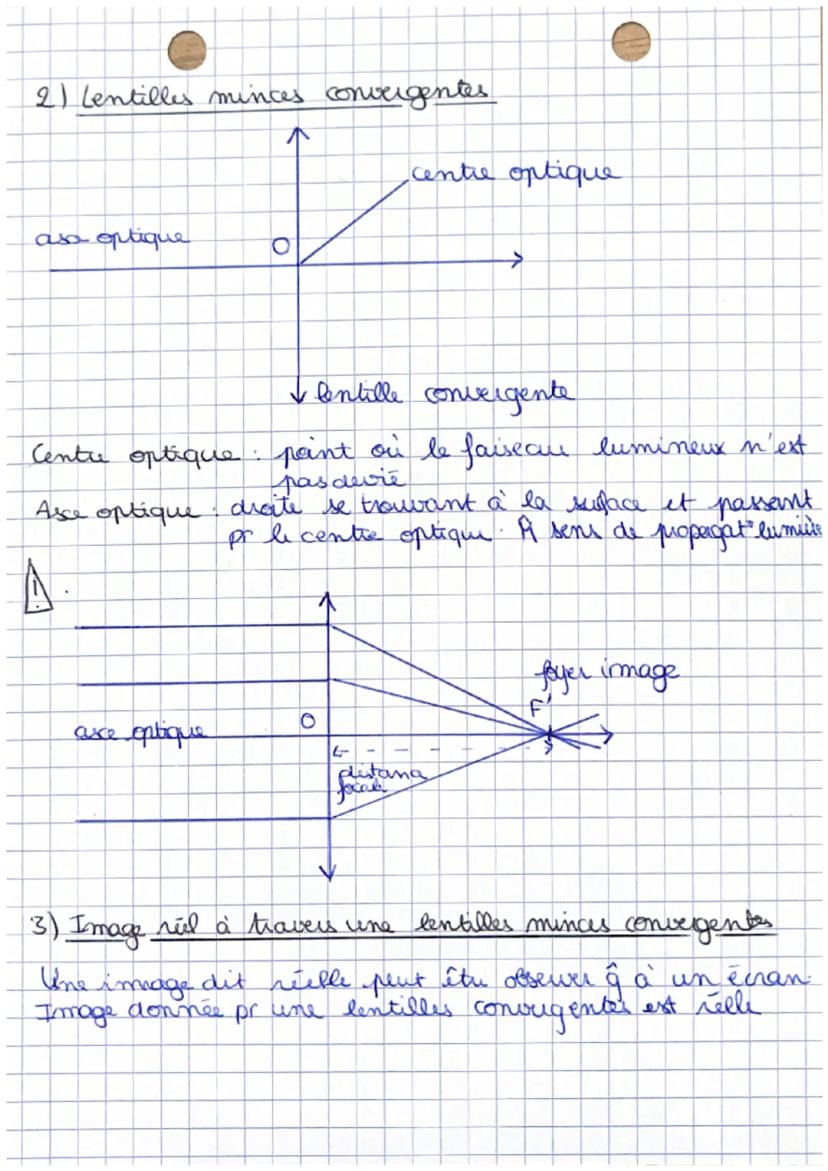 2) Lentilles minces convergentes
centre optique
axe optique
O
lentille convergente
Centre optique : point où le faiseau lumineux n'est
pas devié
Axe optique : droite se trouvant à la surface et passant
pr le centre optique. À sens de propagat° lumière
!
foyer image
F'
axe optique
O
distance
focale
3) Image réel à travers une lentilles minces convergentes
Une image dit réelle peut être observer à un écran.
Image donnée pr une lentilles convergentes est réelle